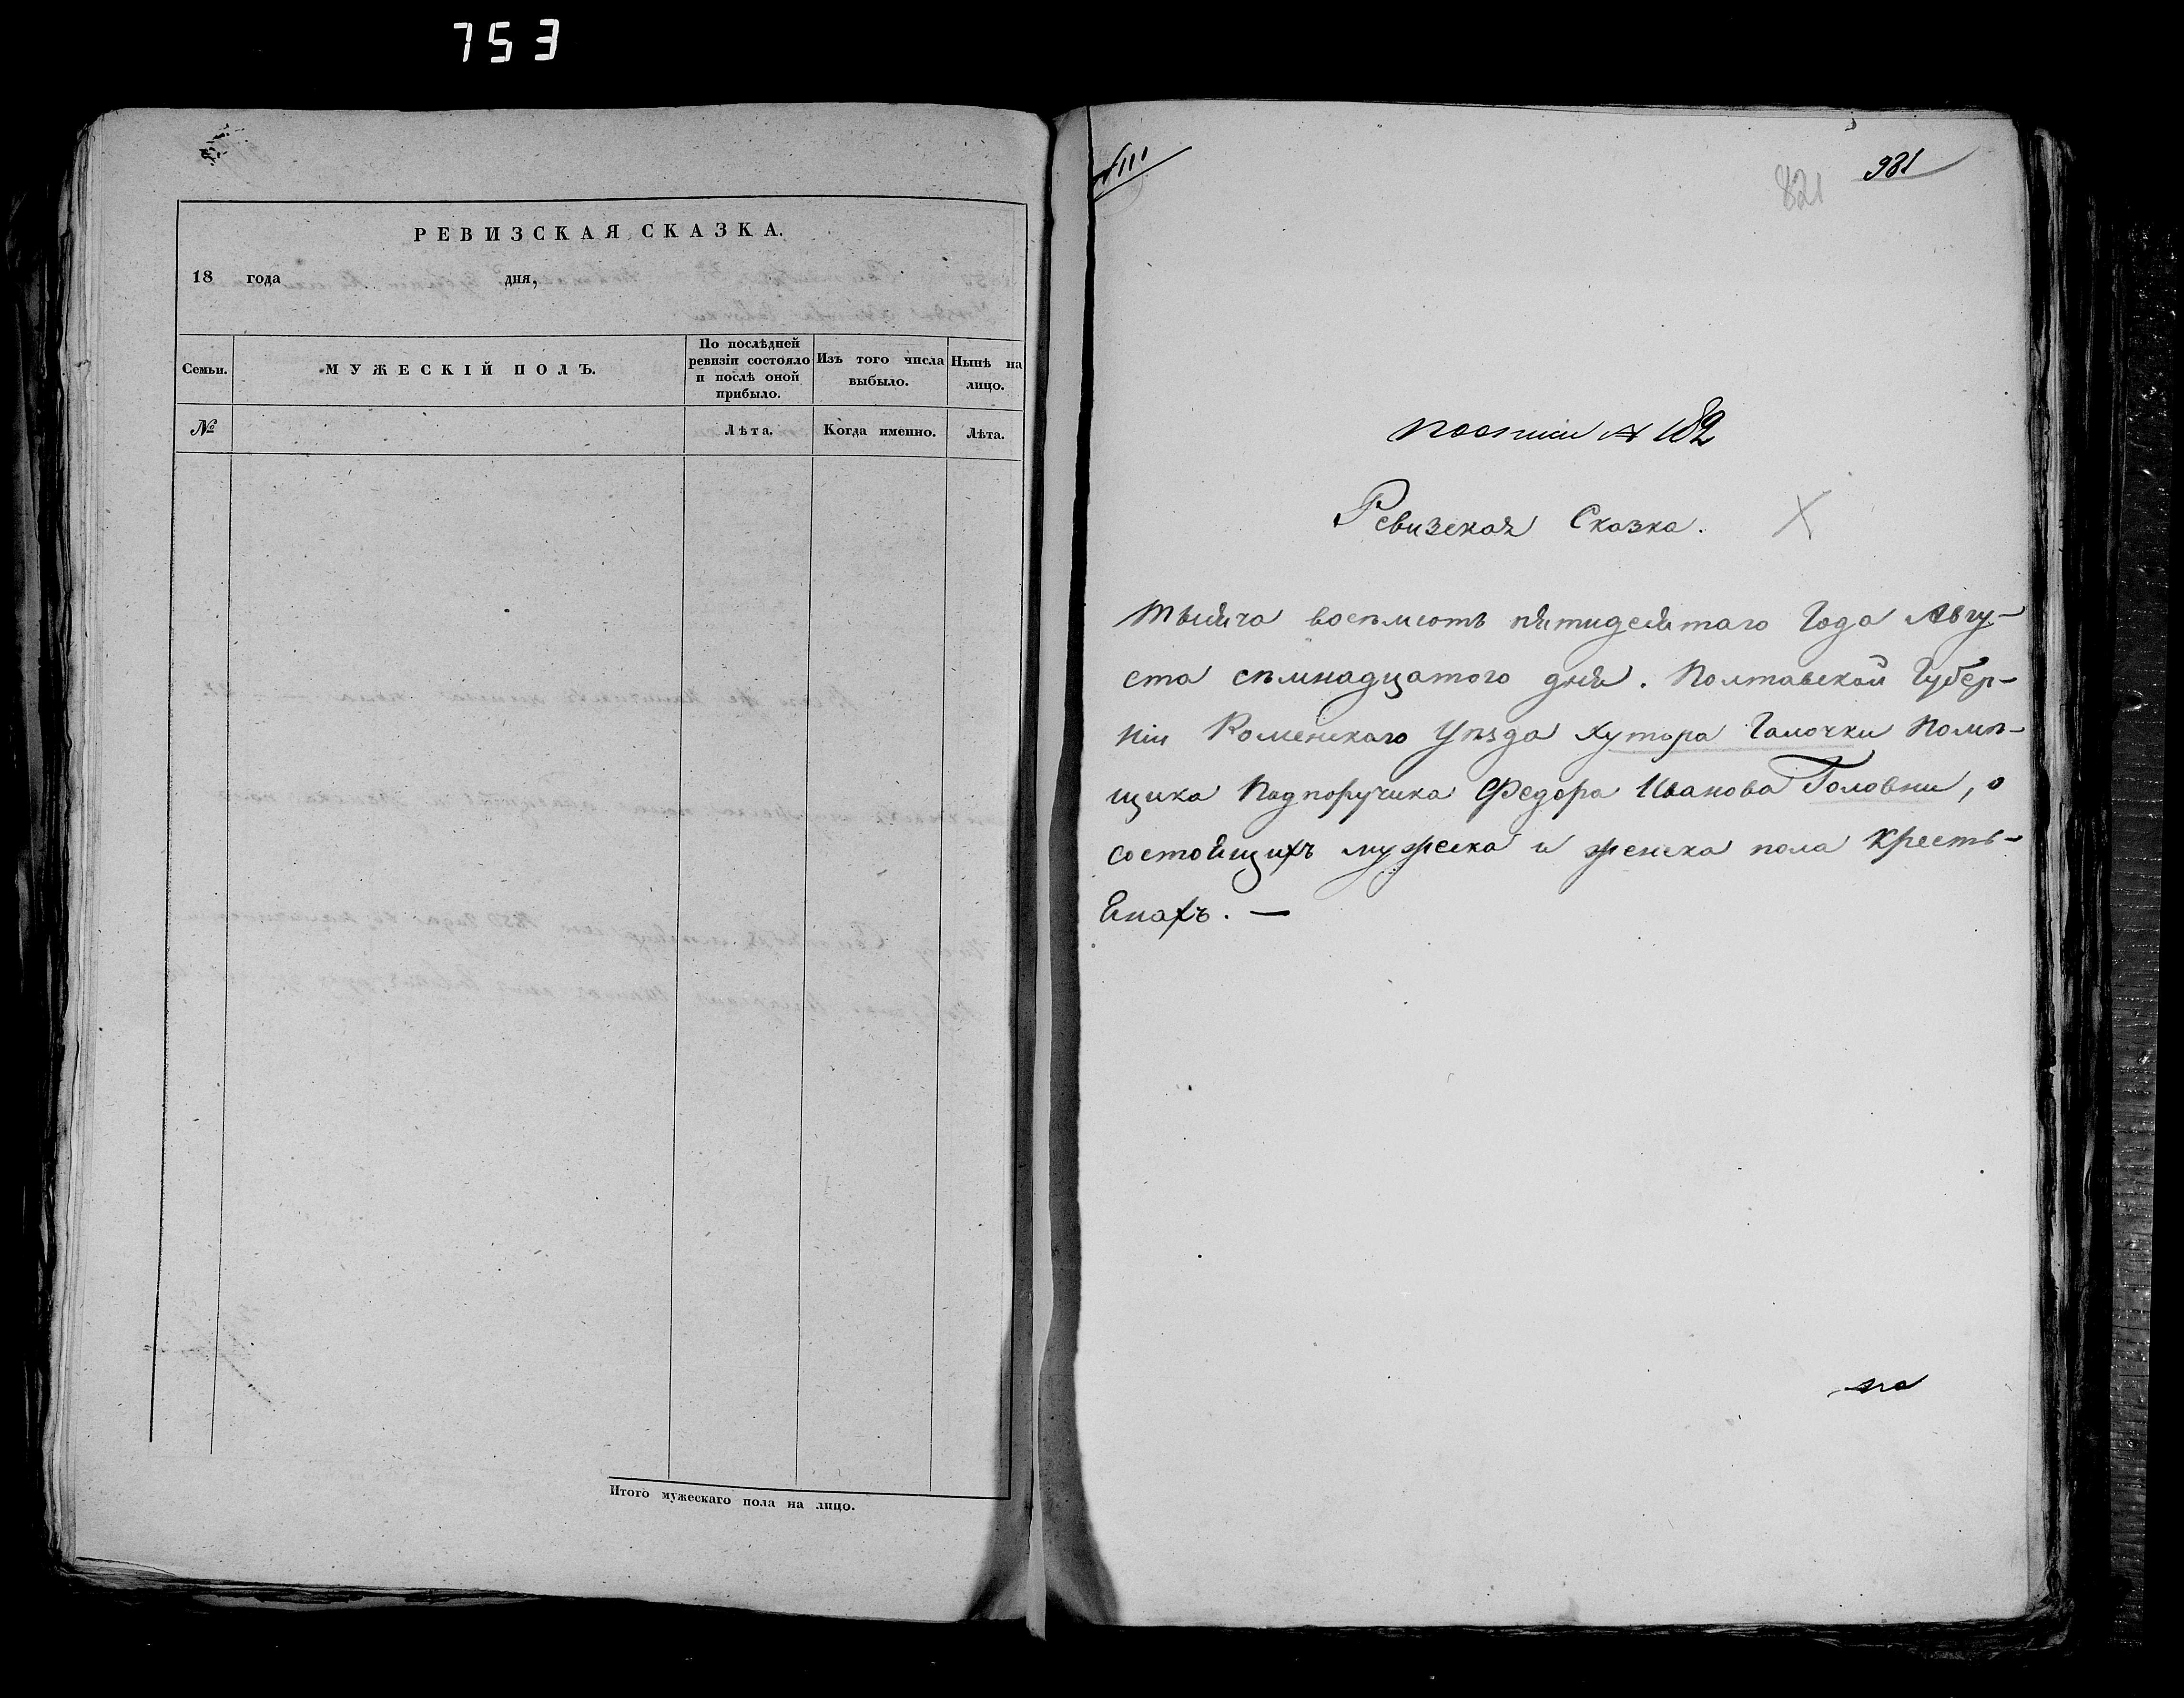 753
РЕВИЗСКАЯ СКАЗКА.
18 года дня,
Семьи.
МУЖЕСКІЙ ПОЛЪ.
По послѣдней
ревизіи состояло
и послѣ оной
прибыло.
Изъ того числа
выбыло.
Нынѣ на
лицо.
№
Лѣта.
Когда именно.
Лѣта.
Итого мужескаго пола на лицо.
981
821
№ 182
Ревизская Сказка.
Тысяча восемьсотъ пятидесятаго Года Авгу-
ста семнадцатого дня. Полтавской Губер-
ніи Роменскаго Уѣзда хутора Галочки Помѣ-
щика Подпоручика Федора Иванова Головни, о
состоящихъ мужеска и женска пола Кресть-
янахъ. —